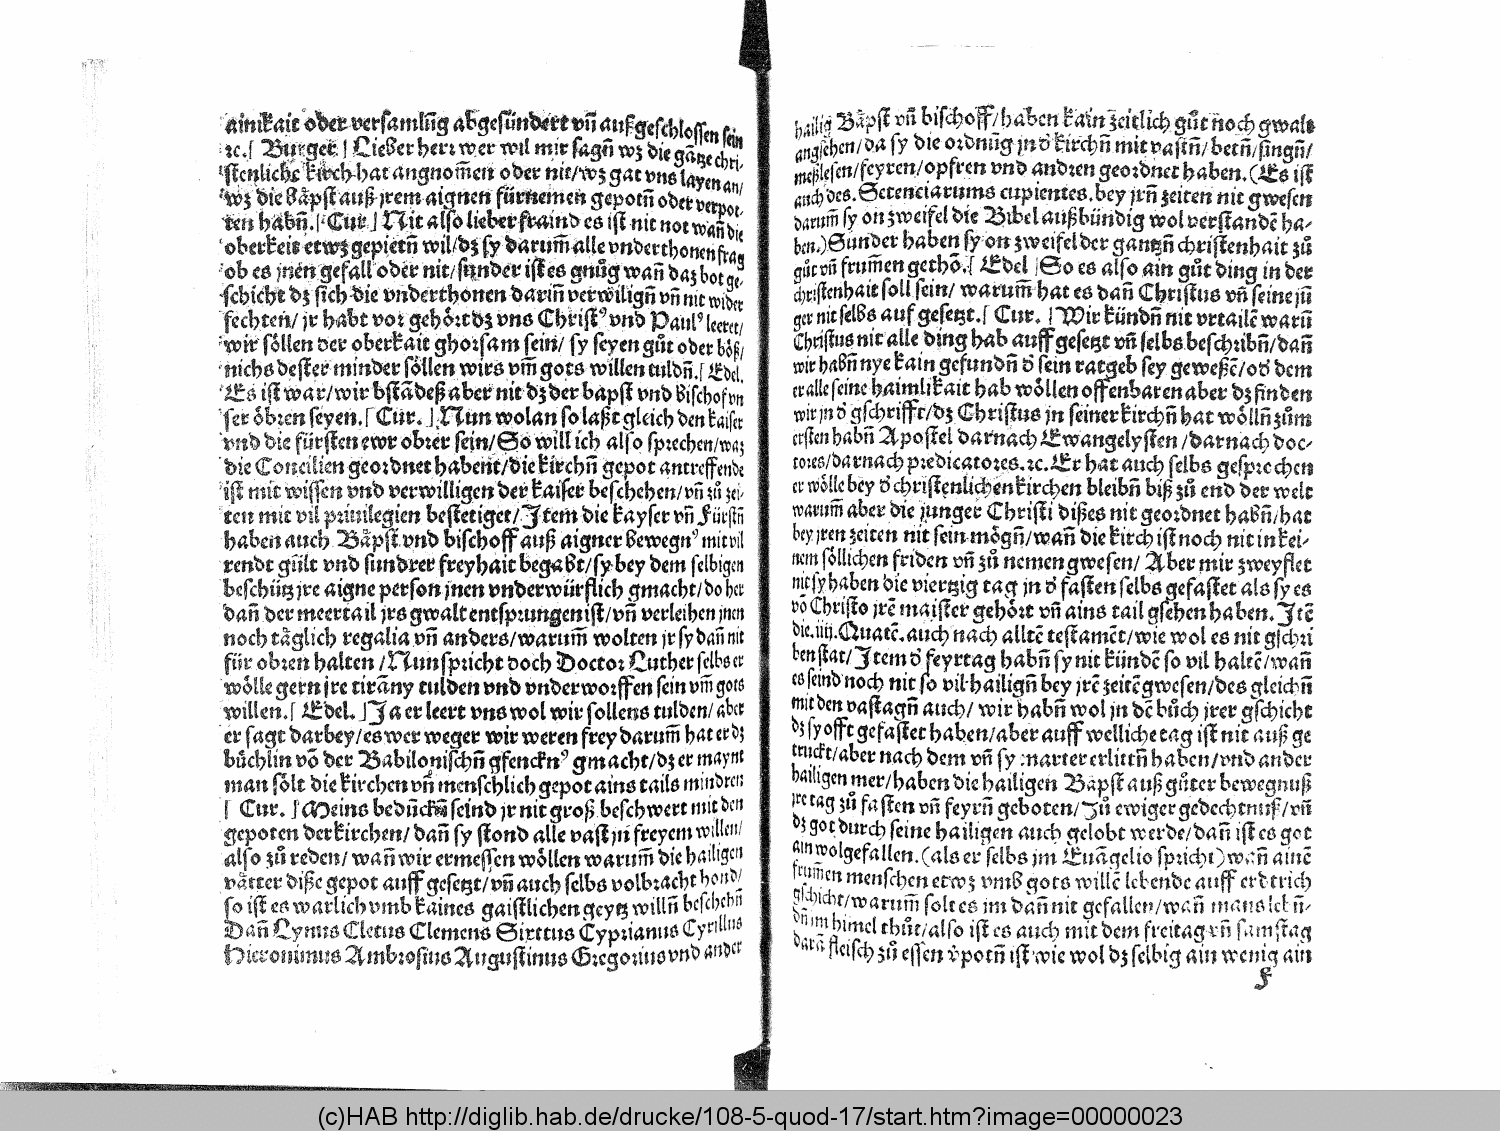 ainikait oder versamlūg abgesündert vn̄ außgeschlossen sein
ꝛc. [ Burger. ] Lieber herꝛ wer wil mir sagn̄ wz die gātze chri-
stenliche kirch hat angnom̄en oder nit/wz gat vns layen an/
wz die Bäpst auß jrem aignen fürnemen gepotn̄ oder verpot-
ten habn̄. [ Cur. ] Nit also lieber fraind es ist nit not wañ die
oberkeit etwz gepietn̄ wil/dz sy darum̄ alle vnderthonen frag
ob es jnen gefall oder nit/sunder ist es gnůg wañ daz bot ge-
schicht dz sich die vnderthonen darin̄ verwilign̄ vn̄ nit wider
fechten/ jr habt voꝛ gehöꝛt dz vns Christꝰ vnd Paulꝰ leeret/
wir söllen der oberkait ghoꝛsam sein/ sy seyen gůt oder böß/
nichs dester minder söllen wirs vm̄ gots willen tuldn̄. [ Edel.
Es ist war/wir bstādeß aber nit dz der bapst vnd Bischof vn
ser öbꝛen seyen. [ Cur. ] Nun wolan so laßt gleich den kaiser
vnd die fürsten ewr obꝛer sein/So will ich also sprechen/waz
die Concilien geoꝛdnet habent/die kirchn̄ gepot antreffende
ist mit wissen vnd verwilligen der kaiser beschehen/vn̄ zů zei-
ten mit vil priuilegien bestetiget/Item die kayser vn̄ Fürstn̄
haben auch Bäpst vnd bischoff auß aigner bewegnꝰ mit vil
rendt gült vnd sundrer freyhait begabt/sy bey dem selbigen
beschütz jre aigne person jnen vnderwürflich gmacht/do her
dañ der meertail jrs gwalt entspꝛungen ist/vn̄ verleihen jnen
noch täglich regalia vn̄ anders/warum̄ wolten jr sy dañ nit
für obꝛen halten /Nun spricht doch Doctoꝛ Luther selbs er
wölle gern jre tirāny tulden vnd vnderwoꝛffen sein vm̄ gots
willen. [ Edel. ] Ja er leert vns wol wir sollens tulden/ aber
er sagt darbey/es wer weger wir weren frey darum̄ hat er dz
büchlin vō der Babilonischn̄ gfencknꝰ gmacht/dz er maynt
man sölt die kirchen vn̄ menschlich gepot ains tails mindren
[ Cur. ] Meins bedūckn̄ seind jr nit groß beschwert mit den
gepoten der kirchen/ dañ sy stond alle vast jn freyem willen/
also zů reden/ wañ wir ermessen wöllen warum̄ die hailigen
vätter diße gepot auff gesetzt/vn̄ auch selbs volbꝛacht hond/
so ist es warlich vmb kaines gaistlichen geytz willn̄ beschehn̄
Dañ Lynus Cletus Clemens Sixtus Cyprianus Cyrillus
Hieronimus Ambrosius Augustinus Gregorius vnd ander
hailig Bäpst vn̄ bischoff/haben kain zeitlich gůt noch gwalt
angsehen/da sy die oꝛdnūg jn d' kirchn̄ mit vastn̄/betn̄/singn̄/
meßlesen/feyren/opfren vnd andꝛen geoꝛdnet haben. (Es ist
auch des. Setenciarums cupientes. bey jrn̄ zeiten nit gwesen
darum̄ sy on zweifel die Bibel außbündig wol verstandē ha-
ben.) Sunder haben sy on zweifel der gantzn̄ christenhait zů
gůt vn̄ frum̄en gethō. [ Edel ] So es also ain gůt ding in der
christenhait soll sein/ warum̄ hat es dañ Christus vn̄ seine jū
ger nit selbs auf gesetzt. [ Cur. ] Wir kündn̄ nit vrtailē warū
Christus nit alle ding hab auff gesetzt vn̄ selbs beschribn̄/dañ
wir habn̄ nye kain gefundn̄ d' sein ratgeb sey geweßē/od' dem
er alle seine haimlikait hab wöllen offenbaren aber dz finden
wir jn d' gschrifft/dz Christus jn seiner kirchn̄ hat wölln̄ zům
ersten habn̄ Apostel darnach Ewangelysten /darnach doc-
toꝛes/darnach pꝛedicatoꝛes. ꝛc. Er hat auch selbs gesprochen
er wölle bey d' christenlichen kirchen bleibn̄ biß zů end der welt
warum̄ aber die junger Christi dißes nit geoꝛdnet habn̄/hat
bey jren zeiten nit sein mögn̄/wañ die kirch ist noch nit in kei-
nem söllichen friden vn̄ zů nemen gwesen/ Aber mir zweyflet
nit sy haben die viertzig tag jn d' fasten selbs gefastet als sy es
vō Christo jrē maister gehöꝛt vn̄ ains tail gsehen haben. Itē
die. iiij. Quatē. auch nach alltē testamēt/wie wol es nit gschri
ben stat/Item d' feyrtag habn̄ sy nit kündē so vil haltē/wañ
es seind noch nit so vil hailign̄ bey jrē zeitē gwesen/des gleichn̄
mit den vastagn̄ auch/ wir habn̄ wol jn dē bůch jrer gschicht
dz sy offt gefastet haben/aber auff welliche tag ist nit auß ge
truckt/aber nach dem vn̄ sy marter erlittn̄ haben/vnd ander
hailigen mer/haben die hailigen Bäpst auß gůter bewegnuß
jre tag zů fasten vn̄ feyrn̄ geboten/Zů ewiger gedechtnuß/vn̄
dz got durch seine hailigen auch gelobt werde/dañ ist es got
ain wolgefallen. (als er selbs jm Euāgelio spricht) wañ ainē
frum̄en menschen etwz vmb gots willē lebende auff erdtrich
gschicht/warum̄ solt es im dañ nit gefallen/wañ mans lebn̄-
dn̄ im himel thůt/also ist es auch mit dem freitag vn̄ samstag
darā fleisch zů essen v'potn̄ ist wie wol dz selbig ain wenig ain
F
(c)HAB http://diglib.hab.de/drucke/108-5-quod-17/start.htm?image=00000023